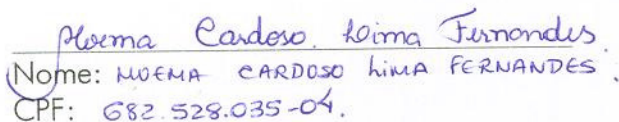 Moema Cardoso Lima Fernandes
Nome: MOEMA CARDOSO LIMA FERNANDES.
CPF: 682.528.035-04.